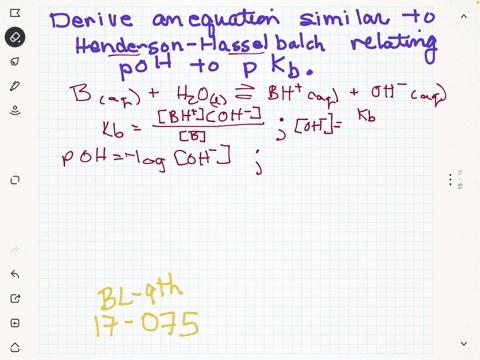 Derive an equation similar to
Henderson-Hasselbalch relating
pOH to pKb.
B(aq) + H₂O(l) ⇌ BH⁺(aq) + OH⁻(aq)
Kb = [BH⁺][OH⁻] / [B] ; [OH⁻] = Kb
pOH = -log [OH⁻] ;
BL-9th
17-075